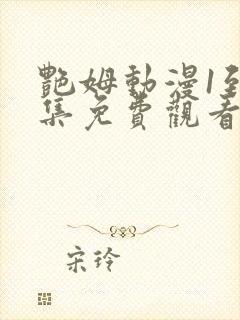 艷姆動漫1至
集免費觀看
宋玲